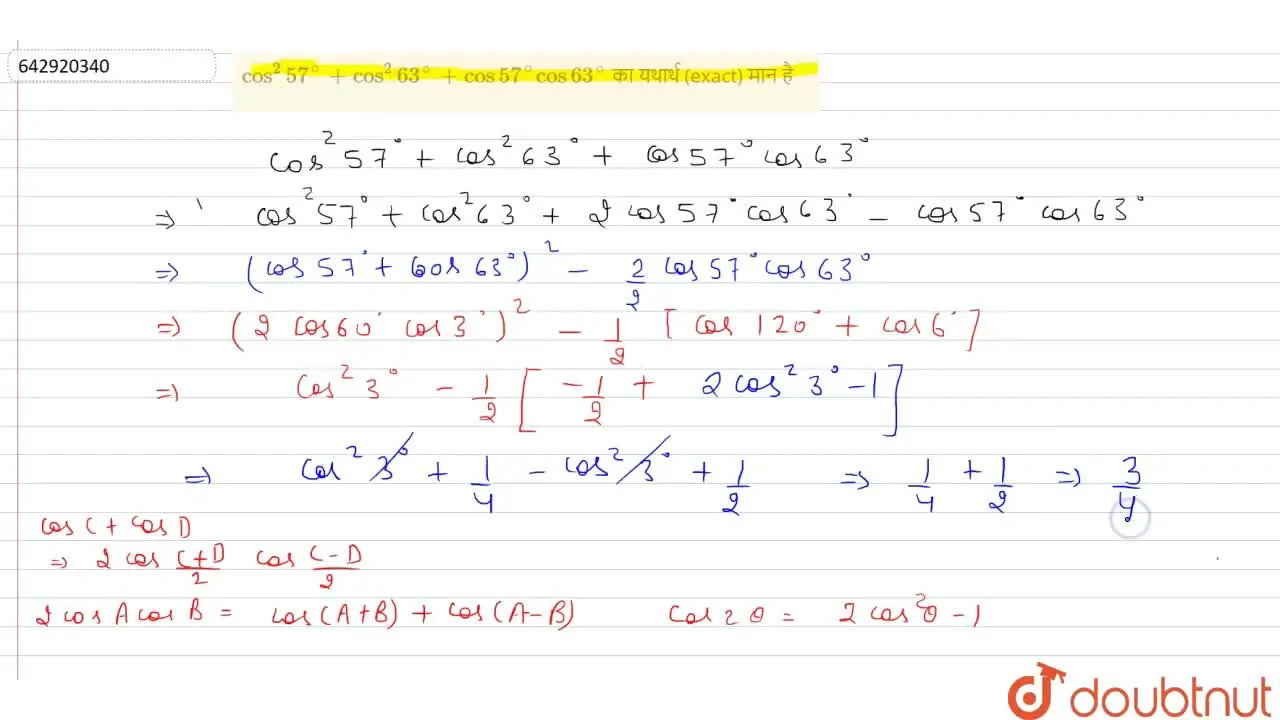 642920340
cos² 57° + cos² 63° + cos 57° cos 63° का यथार्थ (exact) मान है
cos² 57° + cos² 63° + cos 57° cos 63°
⇒ cos² 57° + cos² 63° + 2 cos 57° cos 63° − cos 57° cos 63°
⇒ (cos 57° + cos 63°)² − 2/2 cos 57° cos 63°
⇒ (2 cos 60° cos 3°)² − 1/2 [cos 120° + cos 6°]
⇒ cos² 3° − 1/2 [−1/2 + 2 cos² 3° − 1]
⇒ cos² 3° + 1/4 − cos² 3° + 1/2 ⇒ 1/4 + 1/2 ⇒ 3/4
cos C + cos D
⇒ 2 cos (C+D)/2 cos (C−D)/2
2 cos A cos B = cos(A+B) + cos(A−B) cos 2θ = 2 cos²θ − 1
doubtnut